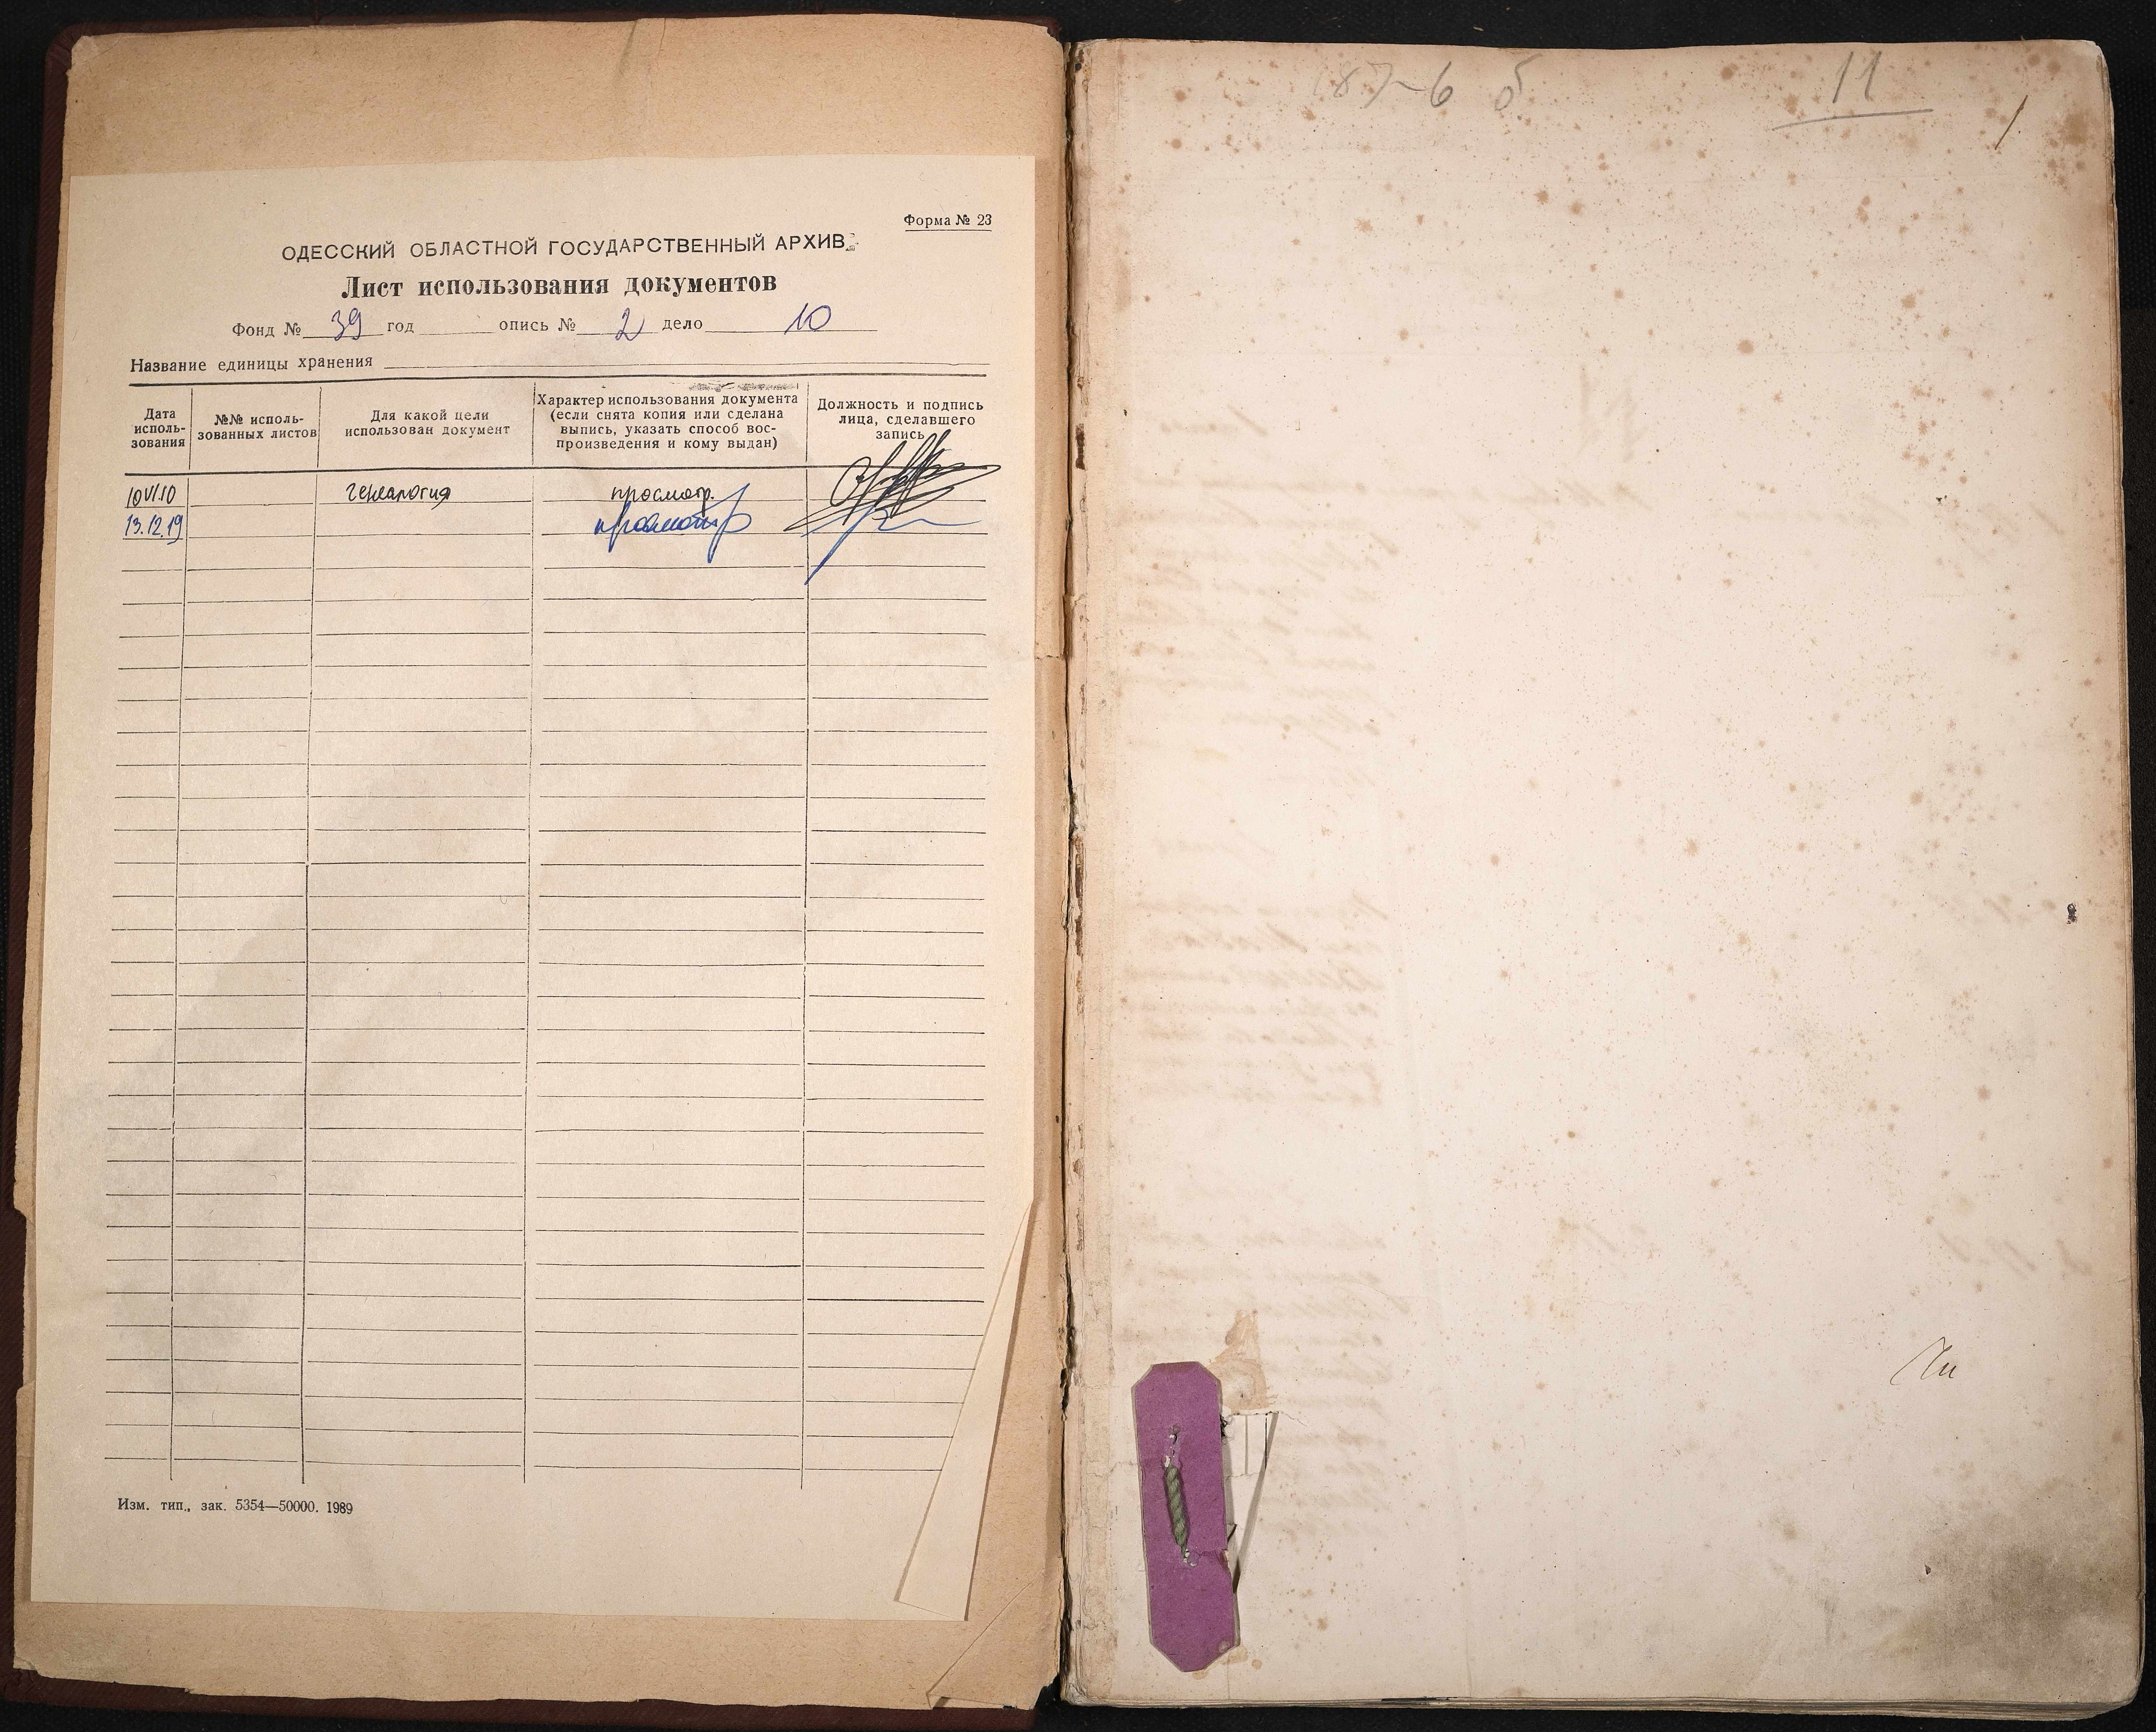 Форма № 23
ОДЕССКИЙ ОБЛАСТНОЙ ГОСУДАРСТВЕННЫЙ АРХИВ
Лист использования документов
Фонд № 39 год опись № 2 дело 10
Название единицы хранения
Дата исполь-зования
№№ исполь-зованных листов
Для какой цели использован документ
Характер использования документа (если снята копия или сделана выпись, указать способ вос-произведения и кому выдан)
Должность и подпись лица, сделавшего запись
10 VI 10 генеалогия просмотр.
13.12.19 просмотр
Изм. тип., зак. 5354—50000. 1989
11
1